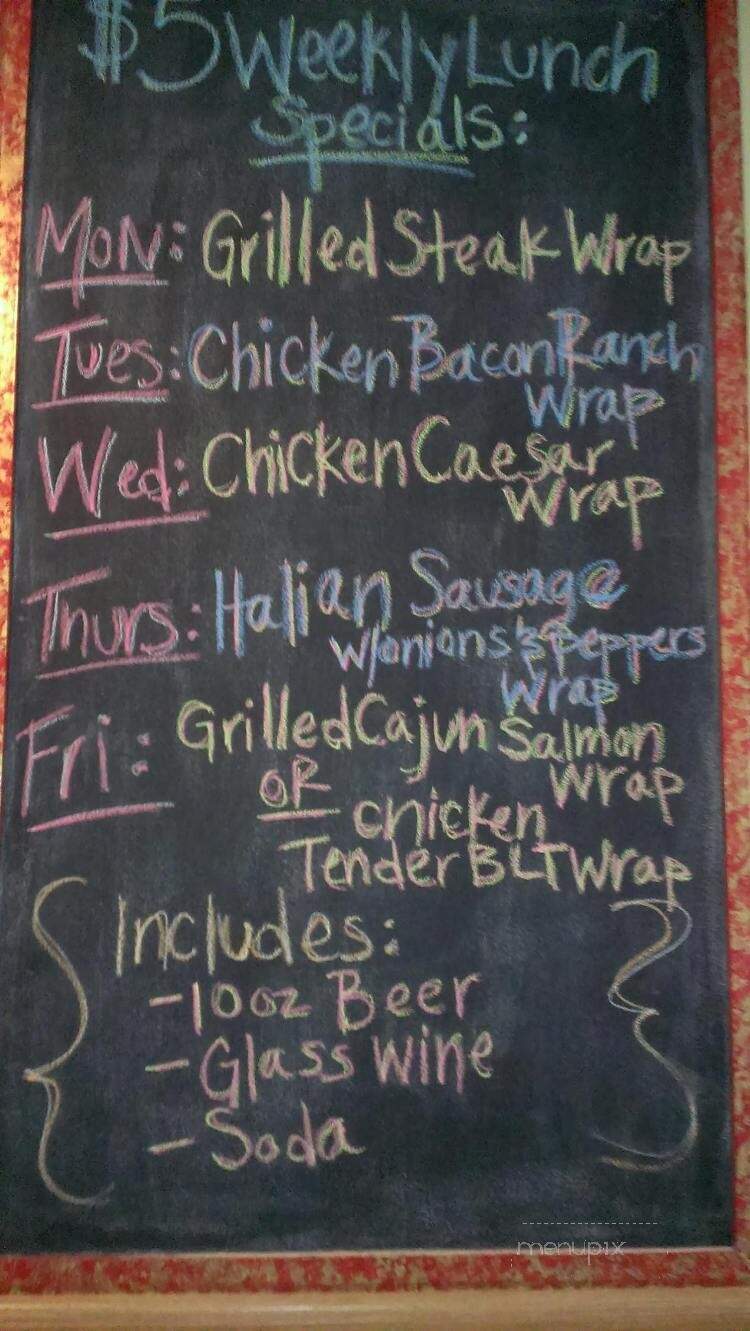 $5 Weekly Lunch
Specials:
Mon: Grilled Steak Wrap
Tues: Chicken Bacon Ranch
Wrap
Wed: Chicken Caesar
Wrap
Thurs: Italian Sausage
w/onions & peppers
Wrap
Fri: Grilled Cajun Salmon
Wrap
OR
chicken
Tender BLT Wrap
Includes:
- 10oz Beer
- Glass wine
- Soda
menupix